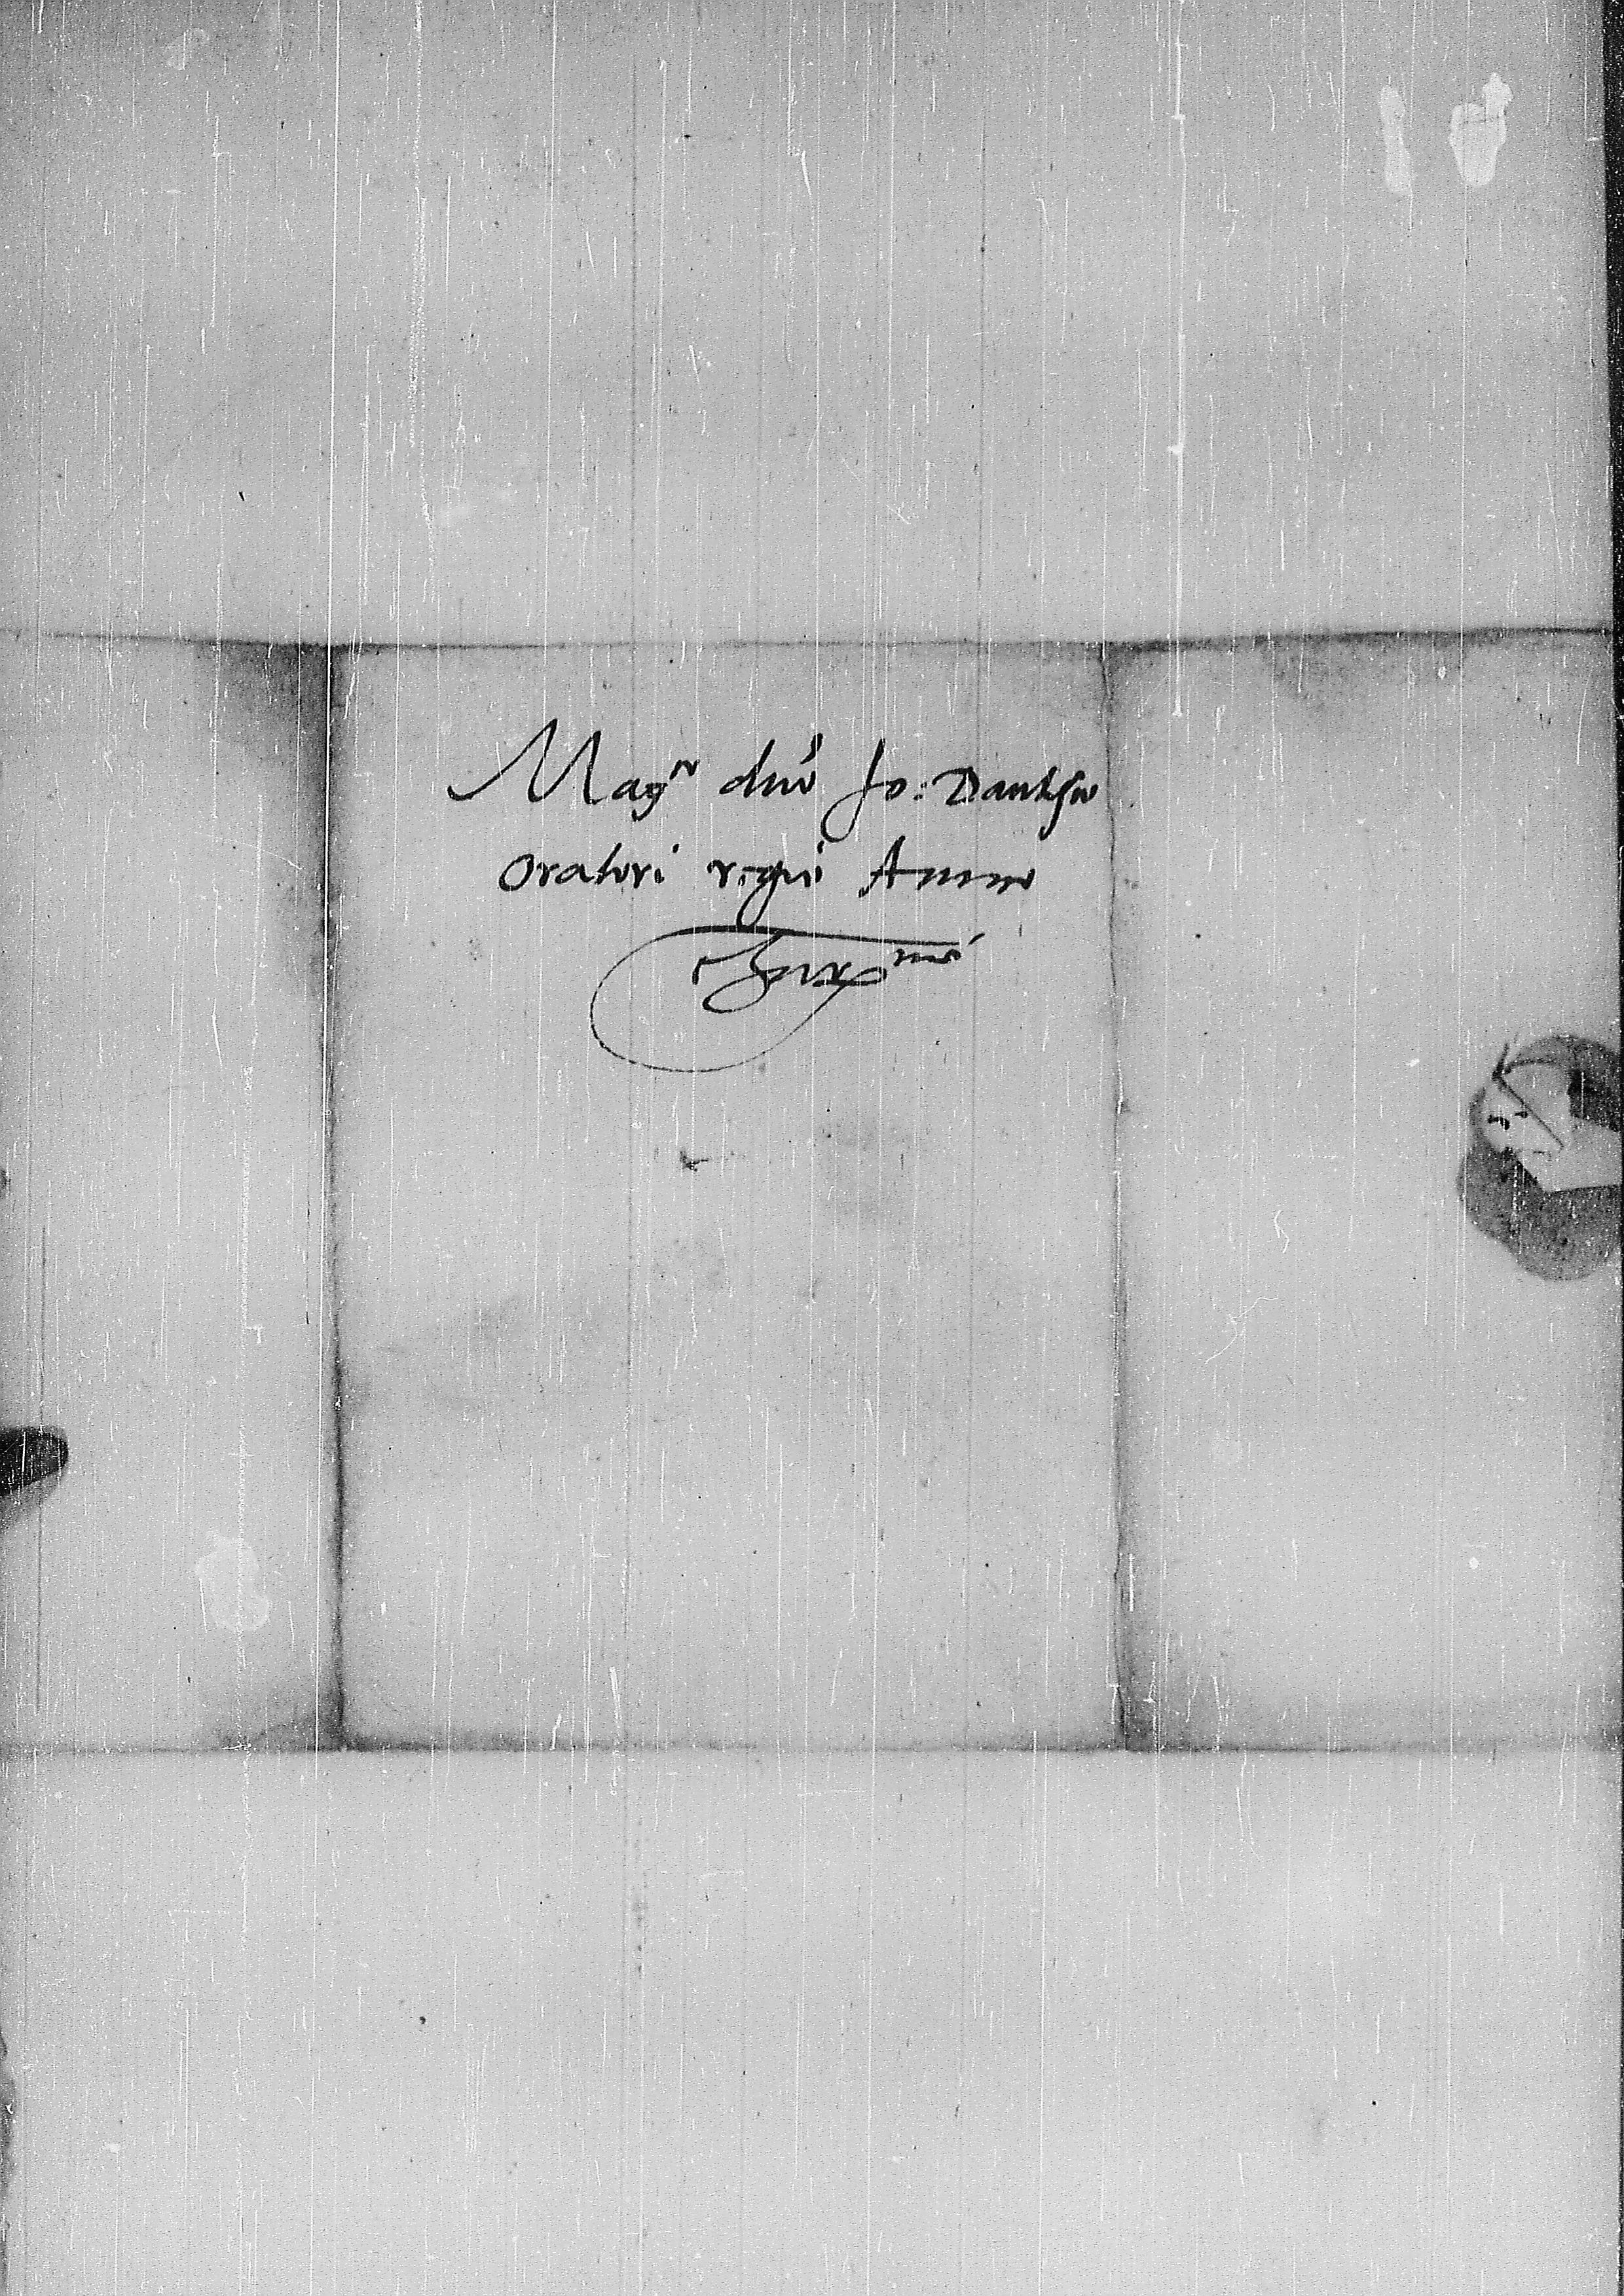 Mag^co dno Jo: Dantisco
Oratori regio Amico
char^mo